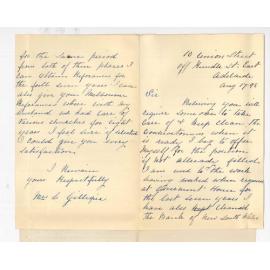 10 Union Street
off Rundle St. East
Adelaide
Aug 17. 98
Sir
Believing you will
require someone to take
care of & keep clean the
Conservatorium when it
is ready I beg to offer
myself for the position
if not already filled.
I am used to the work
having worked when required
at Government House for
the last seven years
have also kept cleaned
the Bank of New South Wales
for the same period
from both of these places I
can obtain References for
the full seven years I can
also give you Melbourne
References where with my
husband we had care of
various churches for eight
years I feel sure if elected
I could give you every
satisfaction.
I Remain
Yours Respectfully
Mrs C Gillespie